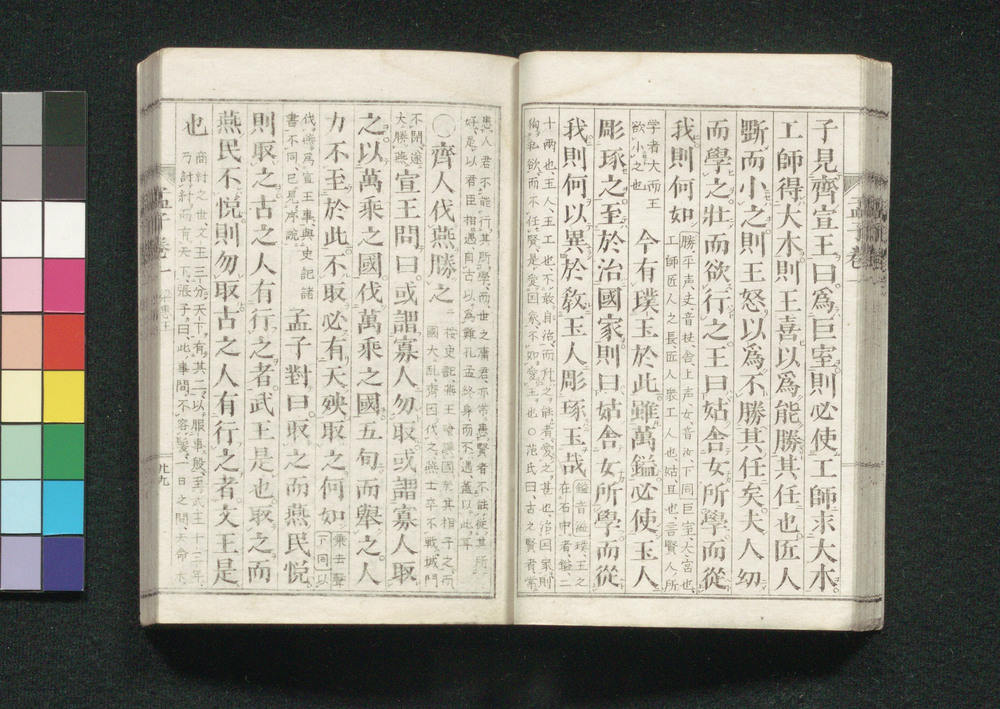 子見齊宣王曰爲巨室則必使工師求大木
工師得大木則王喜以爲能勝其任也匠人
斲而小之則王怒以爲不勝其任矣夫人幼
而學之壯而欲行之王曰姑舍女所學而從
我則何如 勝平声夫音扶舍上声女音汝下同巨室大宮也
工師匠人之長匠人衆工人也姑且也言賢人所
學者大而王
欲小之也
今有璞玉於此雖萬鎰必使玉人
彫琢之至於治國家則曰姑舍女所學而從
我則何以異於敎玉人彫琢玉哉 鎰音溢璞玉之
在石中者鎰二
十兩也玉人玉工也不敢自治而付之能者愛之甚也治国家則
徇私欲而不任賢是愛国家不如愛玉也○范氏曰古之賢者常
患人君不能行其所學而世之庸君亦常患賢者不能從其所
好是以君臣相遇自古以爲難孔孟終身而不遇蓋以此耳
○齊人伐燕勝之 按史記燕王噲讓国於其相子之而
國大乱齊因伐之燕士卒不戰城門
不閉遂
大勝燕
宣王問曰或謂寡人勿取或謂寡人取
之以萬乘之國伐萬乘之國五旬而舉之人
力不至於此不取必有天殃取之何如 乘去聲
下同以
伐燕爲宣王事與史記諸
書不同已見序説
孟子對曰取之而燕民悅
則取之古之人有行之者武王是也取之而
燕民不悅則勿取古之人有行之者文王是
也 商紂之世文王三分天下有其二以服事殷至武王十三年
乃討紂而有天下張子曰此事間不容髮一日之間天命
孟子卷一
孟子卷一
九